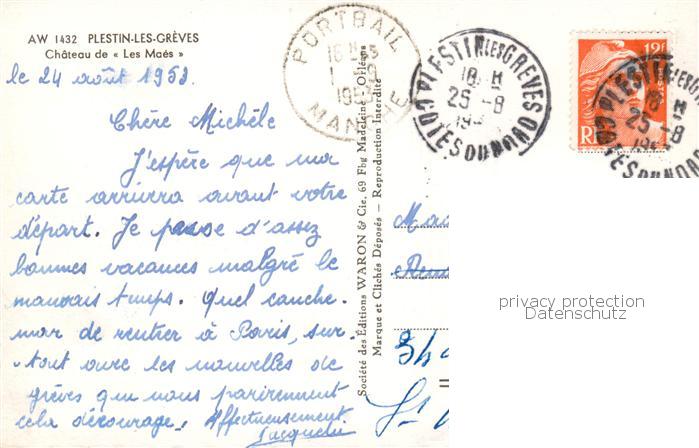 AW 1432 PLESTIN-LES-GRÈVES
Château de « Les Maés »
le 24 août 1953.
Chère Michèle
J'espère que ma
carte arrivera avant votre
départ. Je passe d'assez
bonnes vacances malgré le
mauvais temps. Quel cauche-
mar de rentrer à Paris, sur-
tout avec les nouvelles de
grèves qui nous parviennent
cela décourage. Affectueusement
Jacqueline
Société des Éditions WARON & Cie, 69 Fbg Madeleine - Orléans
Marque et Clichés Déposés - Reproduction Interdite
PORTBAIL
MANCHE
PLESTIN LES GREVES
18 H
25 - 8
COTES DU NORD
12F
RF
PLESTIN
18 H
25 - 8
COTES DU NORD
privacy protection
Datenschutz